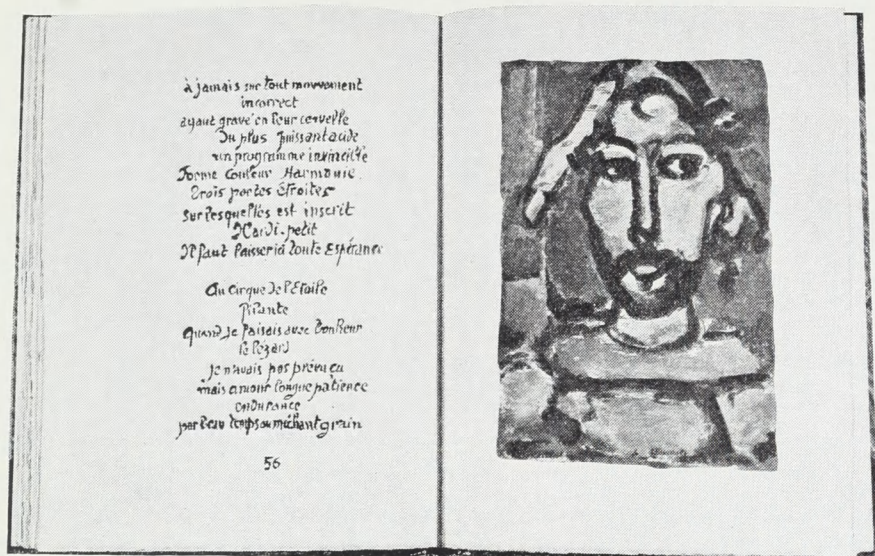 à jamais sur tout mouvement
incorrect
ayant gravé en leur cervelle
Du plus puissant aide
un programme invincible
Forme Couleur Harmonie
Trois portes étroites
sur lesquelles est inscrit
Hardi-petit
Il faut laisser ici toute Espérance
Au Cirque de l'Etoile
Filante
Quand je faisais avec bonheur
le lézard
je n'avais pas prévu ça
mais amour longue patience
endurance
par beau temps ou méchant grain
56